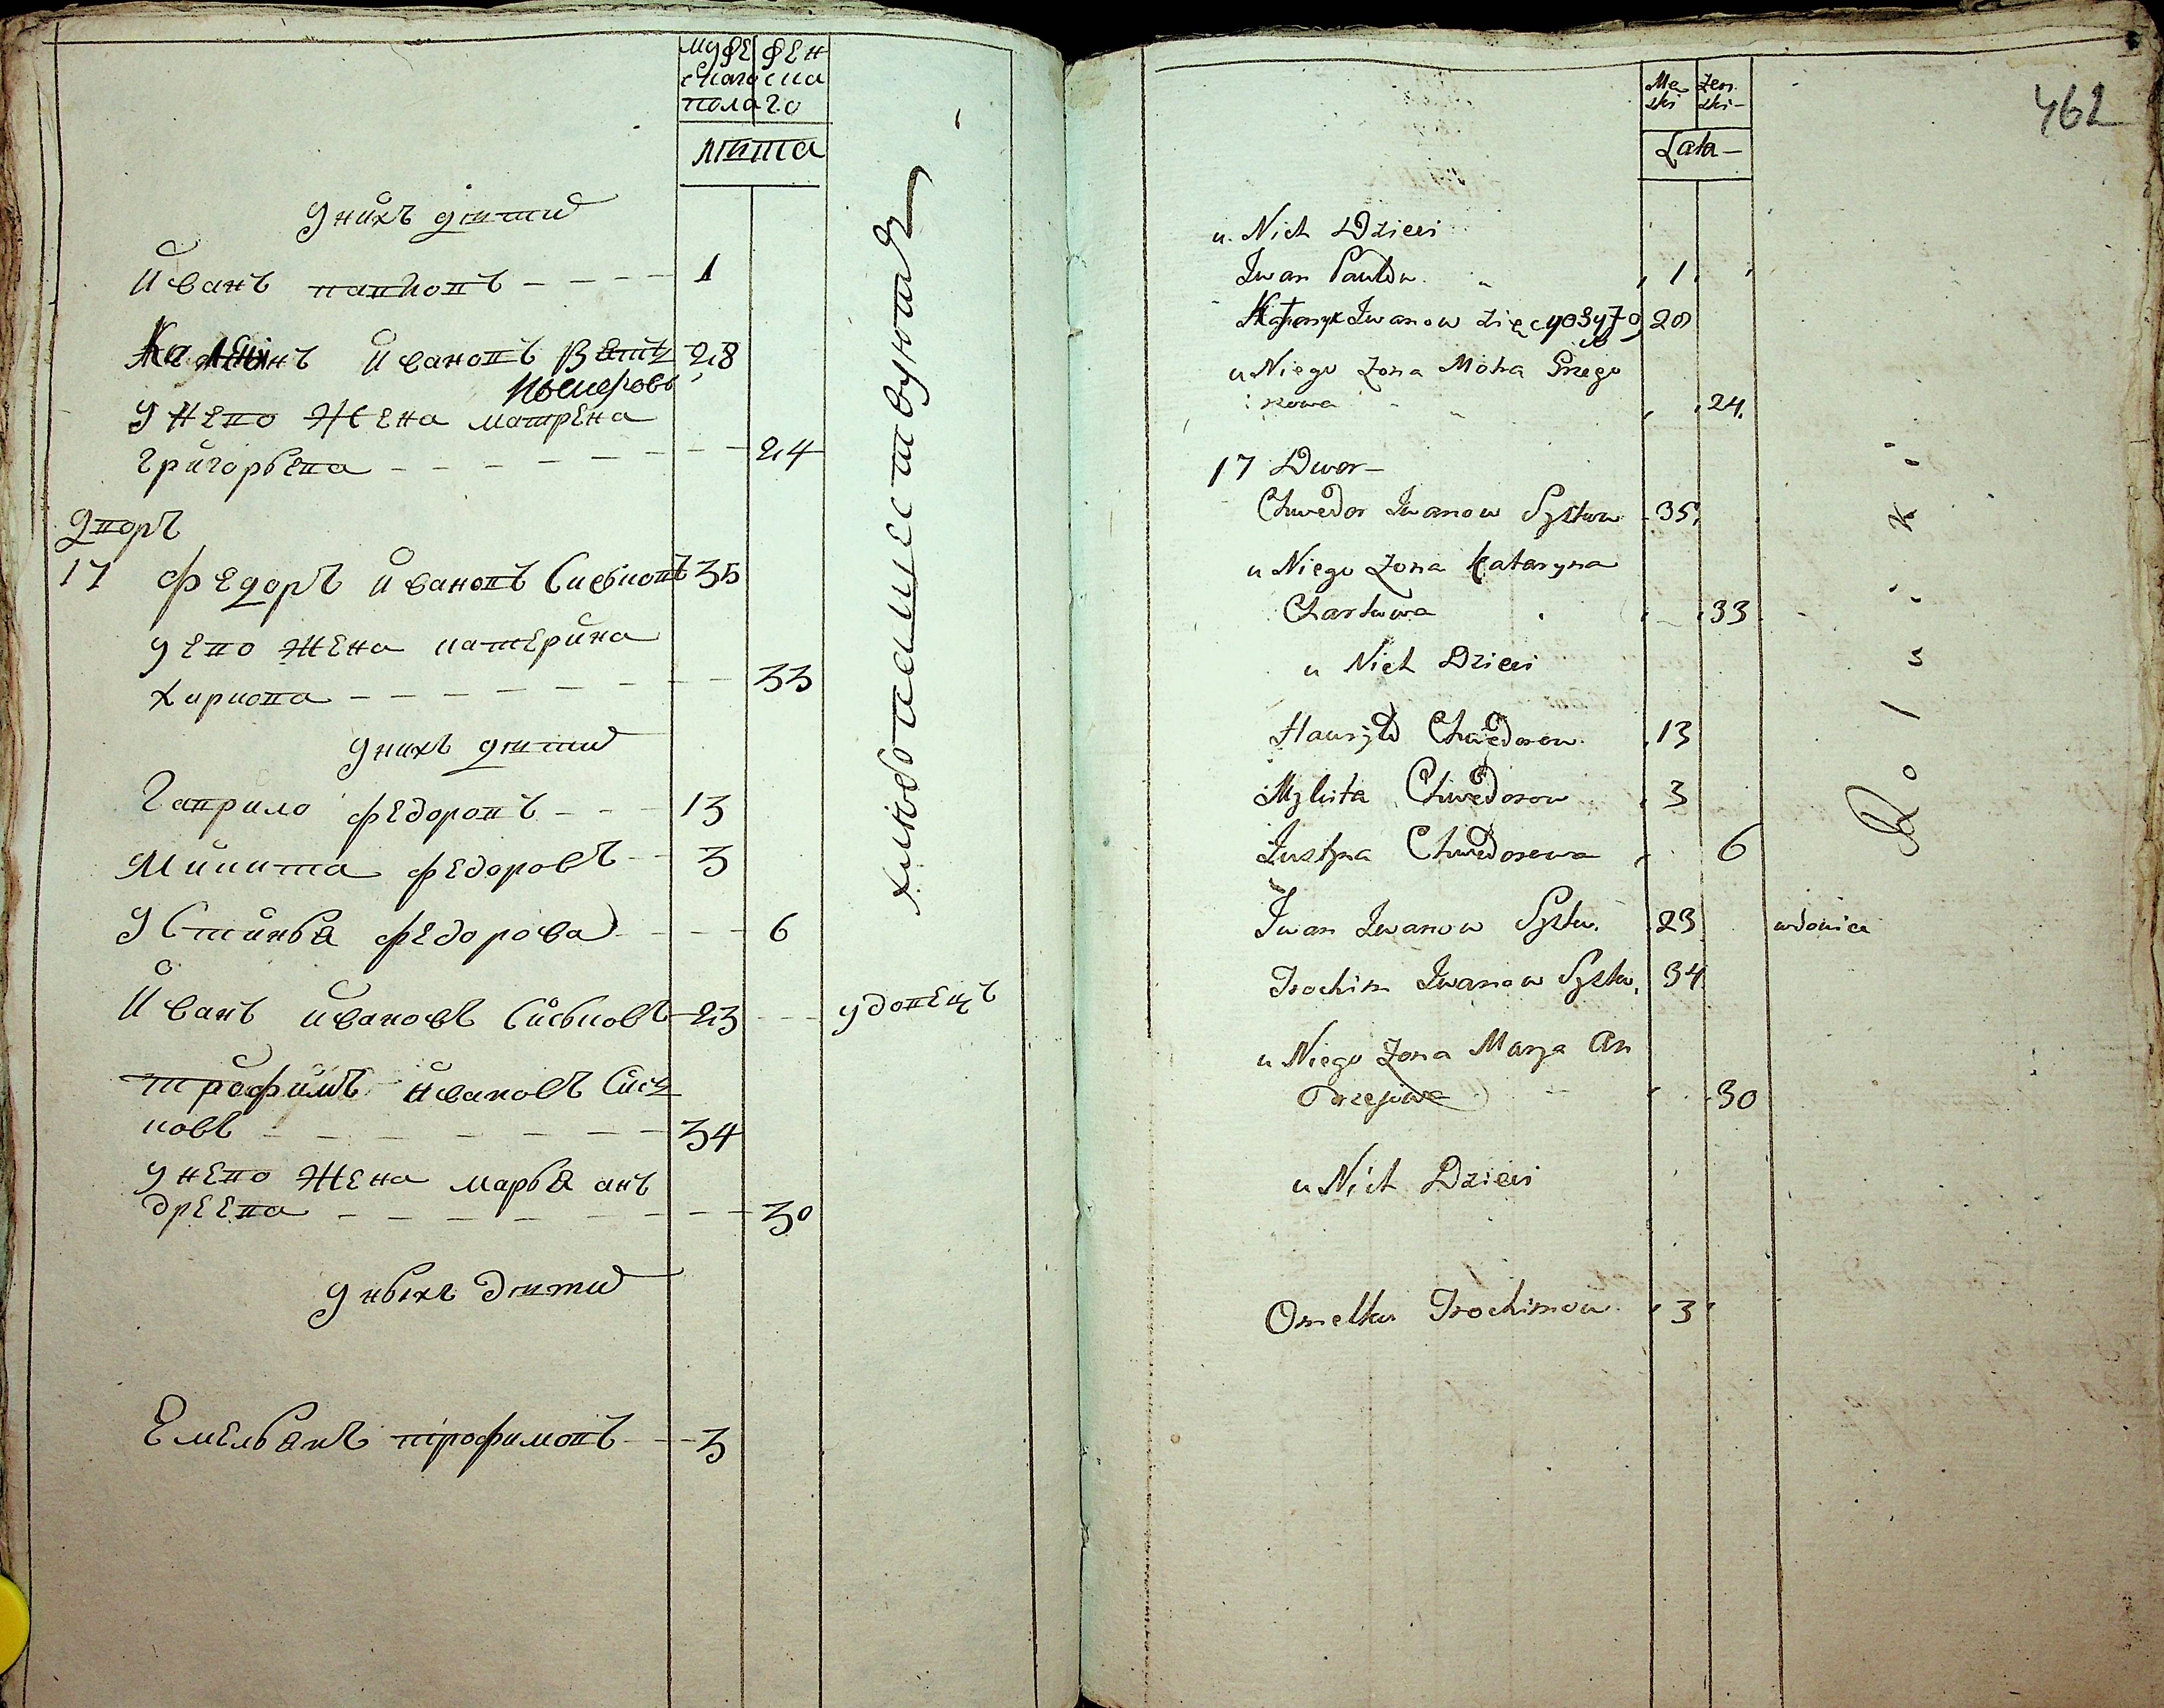 муже женс
скаго ска
пола го
лѣта
у нихъ дѣти
Иванъ павловъ 1
Ивановъ 28
у него жена матрена
григорьева 24
дворъ
17 федоръ ивановъ Сиськовъ 35
у его жена катерина
харкова 33
у нихъ дѣти
гаврило федоровъ 13
Микита федоровъ 3
Устинья федорова 6
Иванъ ивановъ Сиськовъ 23 удовецъ
трофимъ ивановъ Сись
ковъ 34
у него жена марья анъ
дреева 30
у ныхъ дѣти
Емельянъ трофимовъ 3
хлѣбопашествуютъ
462
Mę zki Żen ski
Lata
u Nich Dzieci
Iwan Pawłow 1
Iwanow 28
u Niego Żona Motra Grzego
rzowa 24
17 Dwor
Chwedor Iwanow Syskow 35
u Niego Żona Kataryna
Charkowa 33
u Nich Dzieci
Hawryło Chwedorow 13
Mykita Chwedorow 3
Justyna Chwedorowa 6
Iwan Iwanow Syskw. 23 wdowiec
Trochim Iwanow Syskw. 34
u Niego Żona Marya An
Drzejowa 30
u Nich Dzieci
Omelko Trochimow 3
Rolniki